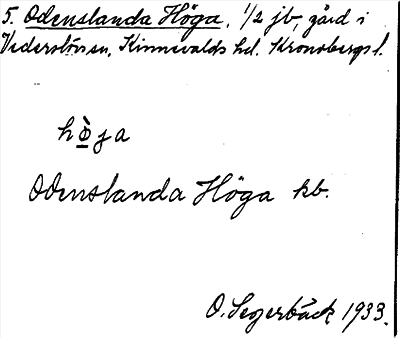 5. Odenslanda Höga, 1/2 jb, gård i
Vederslöv sn, Kinnevalds hd. Kronobergs l.
hø̀ja
Odenslanda Höga kb.
O. Segerbäck 1933.